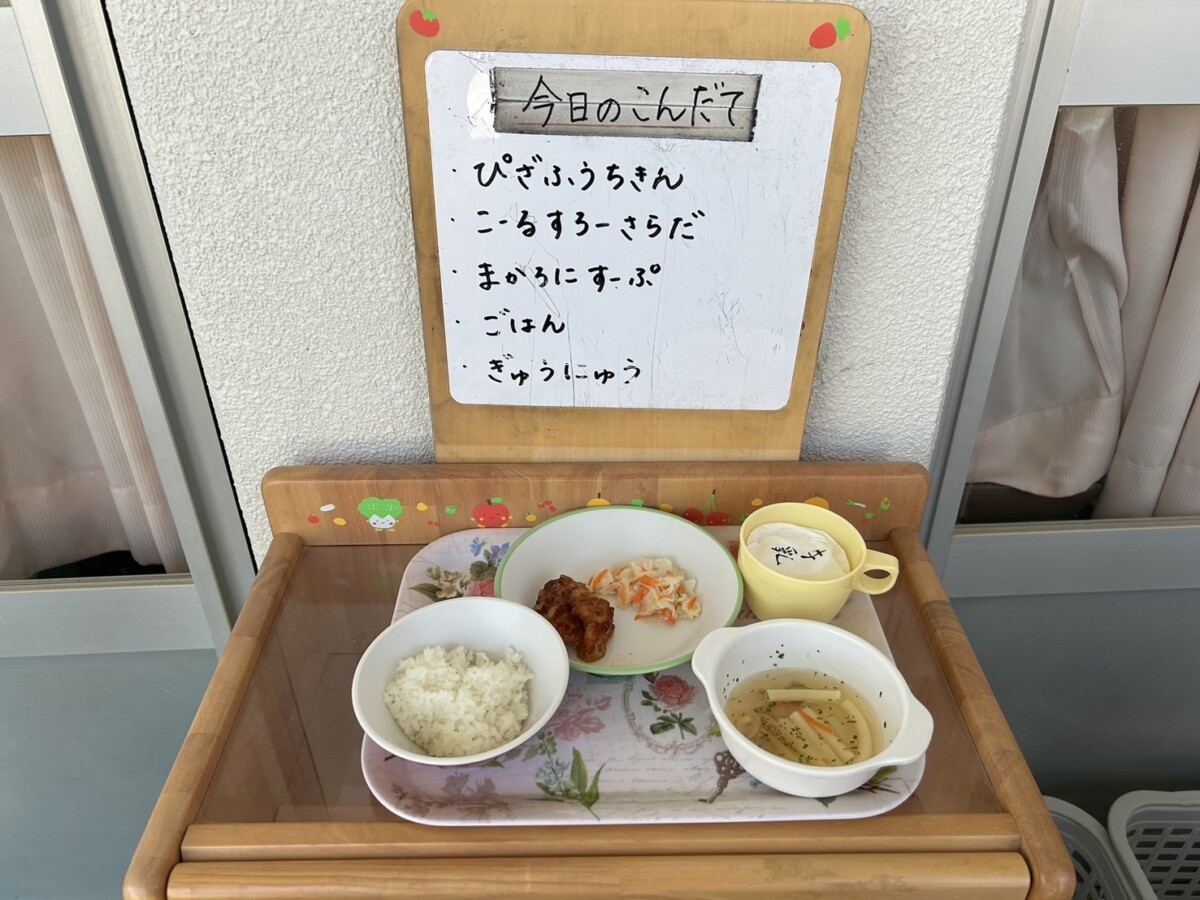 今日のこんだて
・ぴざふうちきん
・こーるすろーさらだ
・まかろにすーぷ
・ごはん
・ぎゅうにゅう
牛乳